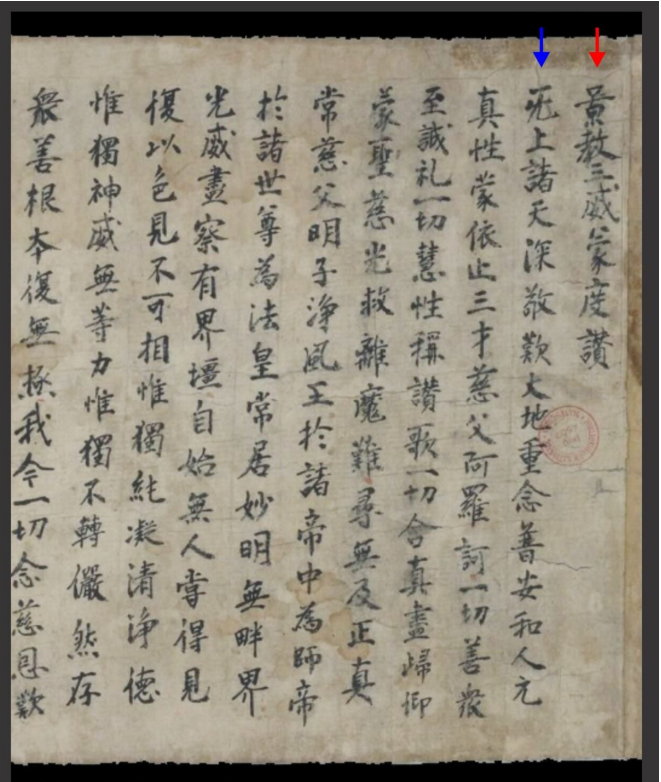 景教三威蒙度讚
无上諸天深敬歎大地重念普安和人元
真性蒙依止三才慈父阿羅訶一切善衆
至誠礼一切慧性稱讚歌一切含真盡歸仰
蒙聖慈光救離魔難尋無及正真
常慈父明子浄風王於諸帝中為師帝
於諸世尊為法皇常居妙明無畔界
光威盡察有界壃自始無人嘗得見
復以色見不可相惟獨純凝清浄德
惟獨神威無等力惟獨不轉儼然存
衆善根本復無極我今一切念慈恩歎